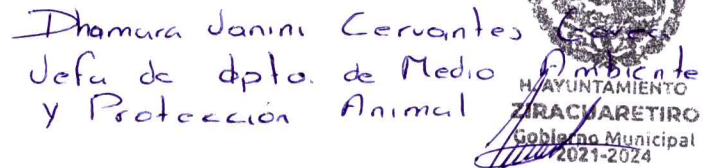 Dhamara Janini Cervantes
Jefa de dpto. de Medio Ambiente
y Protección Animal
H. AYUNTAMIENTO
ZIRACUARETIRO
Gobierno Municipal
2021-2024